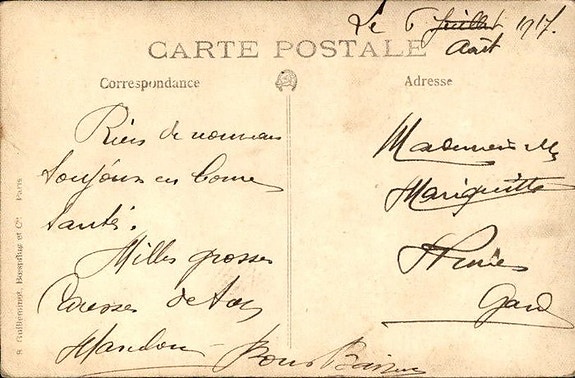 Le 6 Juillet 1917.
Août
CARTE POSTALE
Correspondance
Adresse
Riens de nouveau
toujours en bonne
santé.
Milles grosses
Caresses de ton
Bons Baisers
Mademoiselle
Nimes
Gard
R. Guilleminot, Bœspflug et Cie Paris